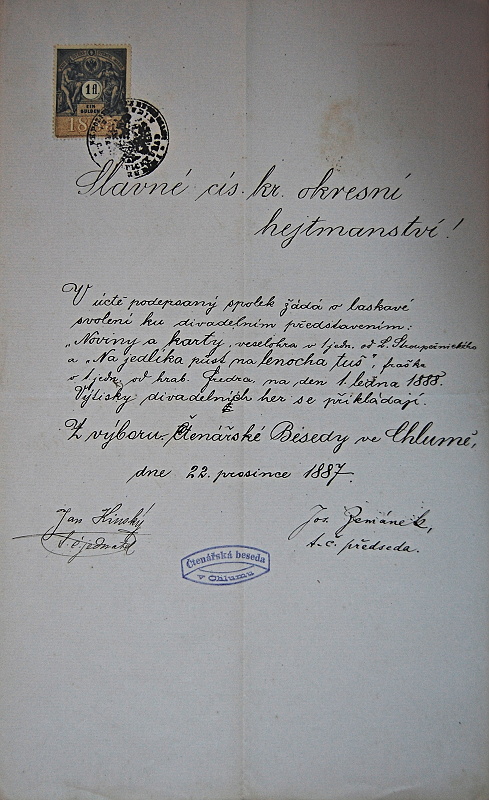 1 fl
EIN
GULDEN
18
Slavné cís. kr. okresní
hejtmanství!
V úctě podepsaný spolek žádá o laskavé
svolení ku divadelním představením:
„Noviny a karty", veselohra v 1 jedn. od L. Stroupežnického
a „Na jedlíka půst na lenocha tuš", fraška
v 1 jedn. od hrab. Fredra, na den 1. ledna 1888.
Výtisky divadelních her se přikládají.
Z výboru Čtenářské Besedy ve Chlumě,
dne 22. prosince 1887.
Jan Kinský
t. č. jednatel
Jos. Zemánek,
t. č. předseda.
Čtenářská beseda
v Chlumu